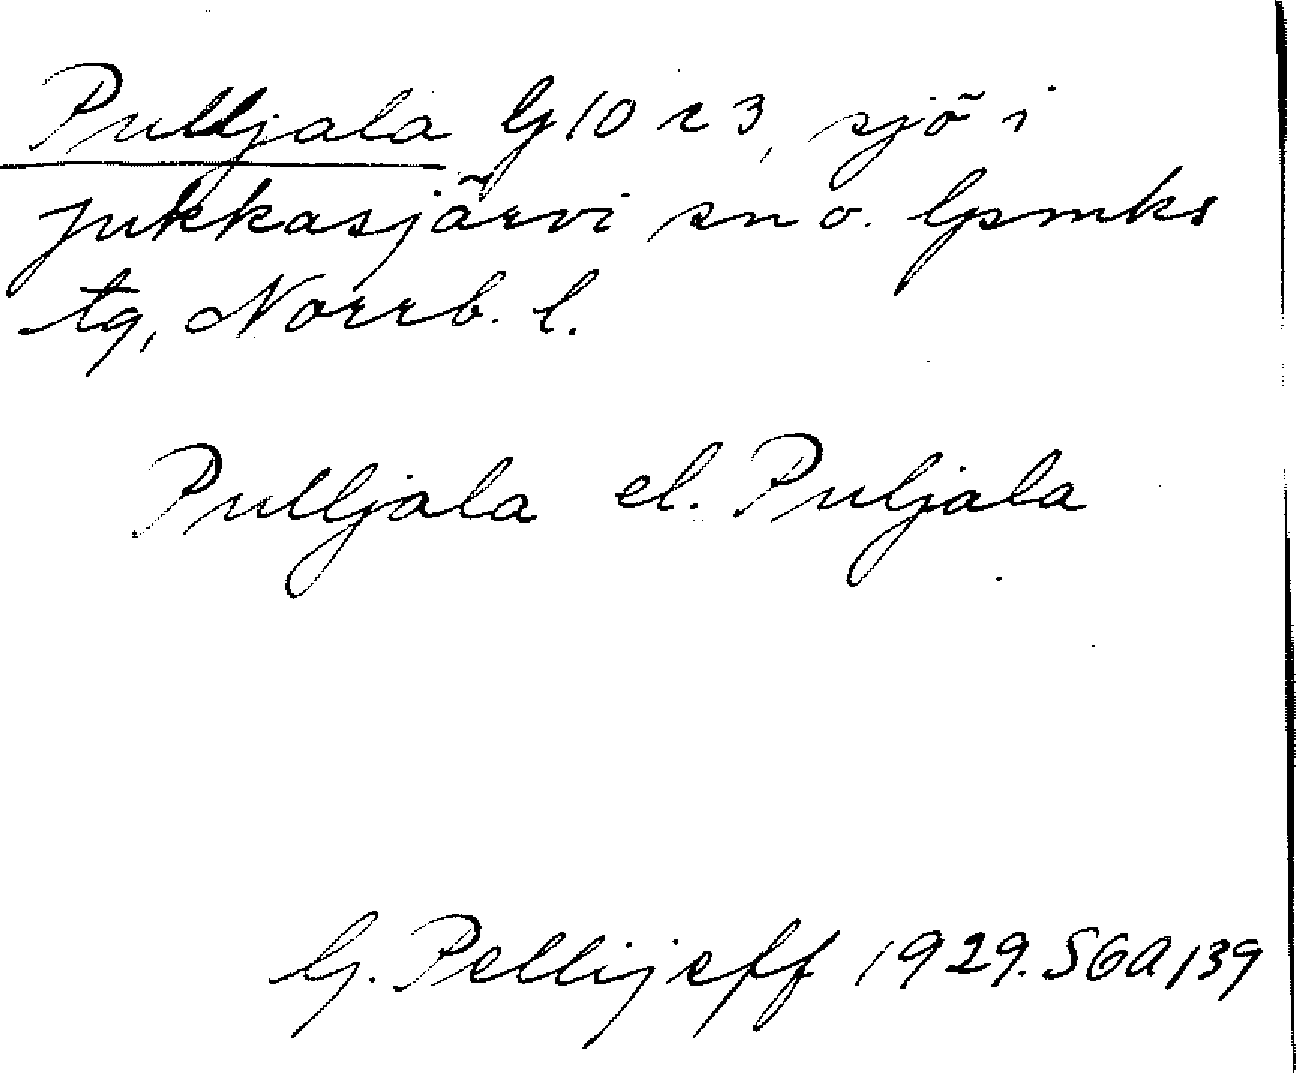 Pulljala G10 c3, sjö i
Jukkasjärvi sn o. lpmks
tg, Norrb. l.
Pulljala el. Puljala
G. Pellijeff 1929. SGA 139